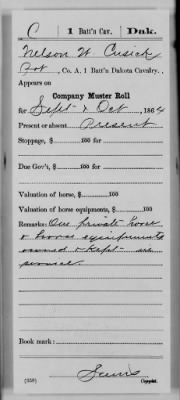 C | 1 Batt'n Cav. | Dak.
Nelson W. Cusick
Pvt, Co. A, 1 Batt'n Dakota Cavalry.,
Appears on
Company Muster Roll
for Sept & Oct, 1864
Present or absent Present
Stoppage, $ 100 for
Due Gov't, $ 100 for
Valuation of horse, $ 100
Valuation of horse equipments, $ 100
Remarks: One private horse
& horse equipments
owned & kept in
service.
Book mark:
(358) Copyist.